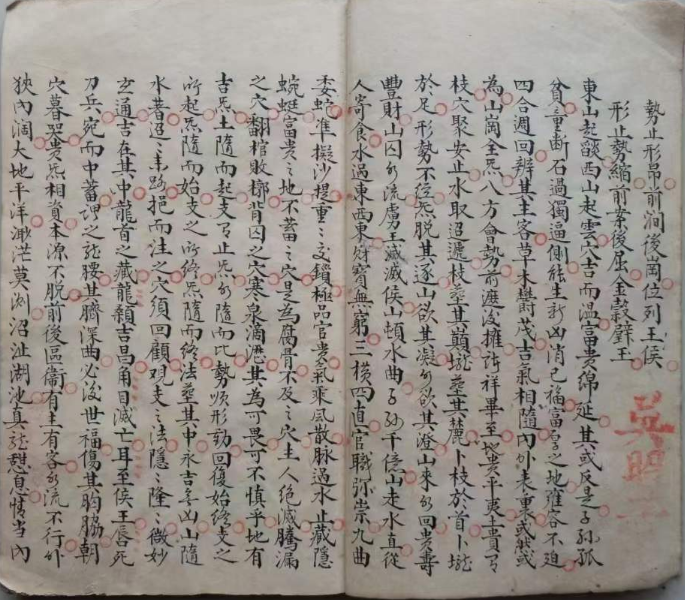 勢止形昂前澗後崗位列王侯
形止勢縮前案後屈金穀璧玉
東山起燄西山起雲穴吉而温富貴綿延其或反是子孫孤
貧童斷石過獨逼側能生新凶消已福富貴之地雍容不迫
四合週回辨其主客草木欝茂吉氣相隨內外表東或然或
為山崗全炁八方會勢前遮後擁許祥畢至地貴平夷土貴有
枝穴聚安止水取迢遞枝塟其巔壠塟其麓卜枝於首卜壠
於足形勢不經炁脱其逐山欲其凝水欲其澄山來水回貴壽
豐財山囚水流虜王滅侯山頓水曲子孙千億山走水直從
人寄食水過東西東財寳無窮三横四直官職弥崇九曲
委蛇準擬沙提重々交鎖極品官貴氣乘風散脉過水止藏隱
蜿蜒富貴之地不蓄之穴是為腐骨不及之穴主人绝滅騰漏
之穴翻棺敗槨背囚之穴寒泉滴瀝其為可畏可不慎乎地有
吉炁土隨而起支有止炁水隨而比勢順形動回復始終支之
所起炁隨而始支之所終炁隨而終法塟其中永吉無凶山隨
水著迢々来路挹而注之穴須回顧观支之法隱々隆々微妙
玄通吉在其中龍首之藏龍顙吉昌角目滅亡耳至侯王唇死
刀兵宛而中蓄謂之龍腰其臍深曲必後世福傷其胸脇朝
穴暮哭貴炁相資本源不脱前後區衛有主有客水流不行外
狹內濶大地平洋渺茫莫測沼沚湖池真龍憩息情當內